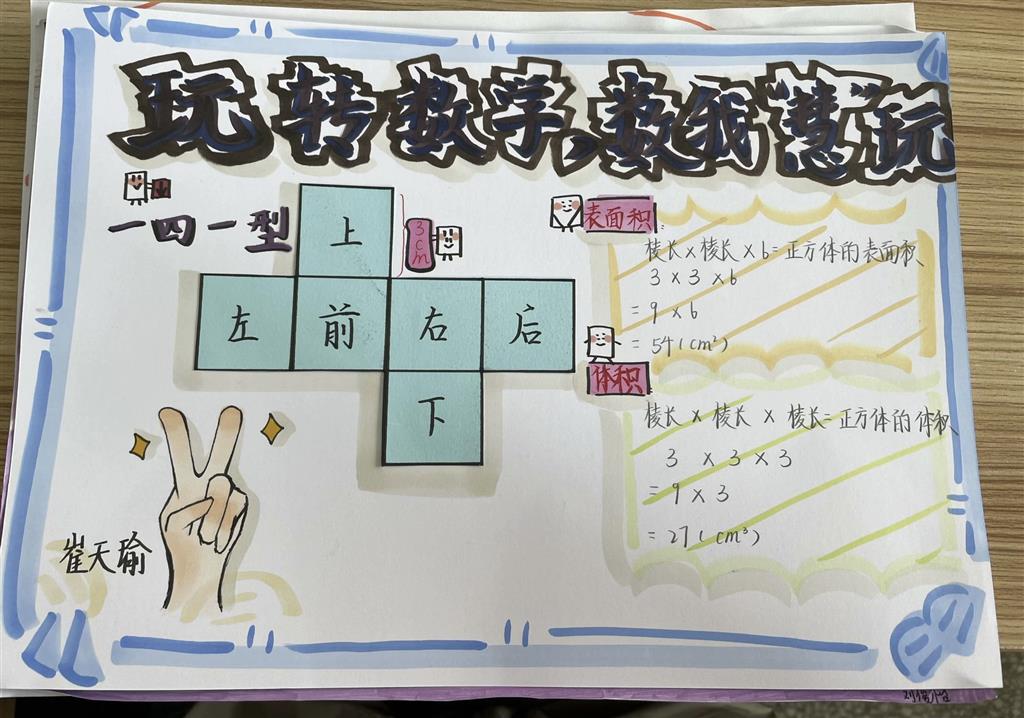 玩转数学、数我"慧"玩
一四一型
上
3cm
左 前 右 后
下
表面积:
棱长×棱长×6=正方体的表面积
3×3×6
=9×6
=54(cm²)
体积
棱长×棱长×棱长=正方体的体积
3×3×3
=9×3
=27(cm³)
崔天瑜